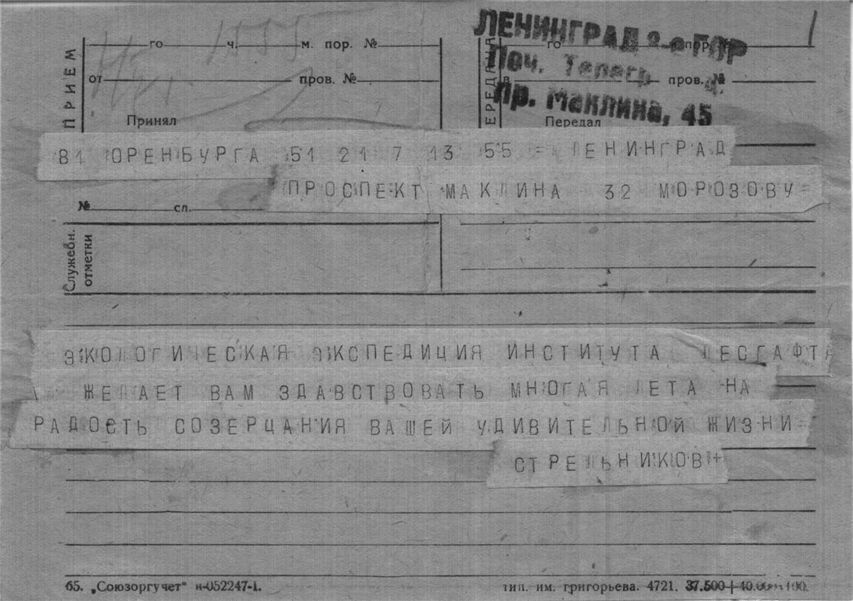 ПРИЕМ
го ч. м. пор. №
от пров. №
Принял
ЛЕНИНГРАД 2-е ГОР
Поч. Телегр
Пр. Маклина, 45
го пор. №
в пров. №
Передал
1
81 ОРЕНБУРГА 51 21 7 13 55 = ЛЕНИНГРАД
ПРОСПЕКТ МАКЛИНА 32 МОРОЗОВУ=
№ сл.
Служебн. отметки
ЭКОЛОГИЧЕСКАЯ ЭКСПЕДИЦИЯ ИНСТИТУТА ЛЕСГАФТА
ЖЕЛАЕТ ВАМ ЗДАВСТВОВАТЬ МНОГАЯ ЛЕТА НА
РАДОСТЬ СОЗЕРЦАНИЯ ВАШЕЙ УДИВИТЕЛЬНОЙ ЖИЗНИ=
СТРЕЛЬНИКОВ+
65. „Союзоргучет" н-052247-1.
тип. им. григорьева. 4721. 37.500+40.000×100.